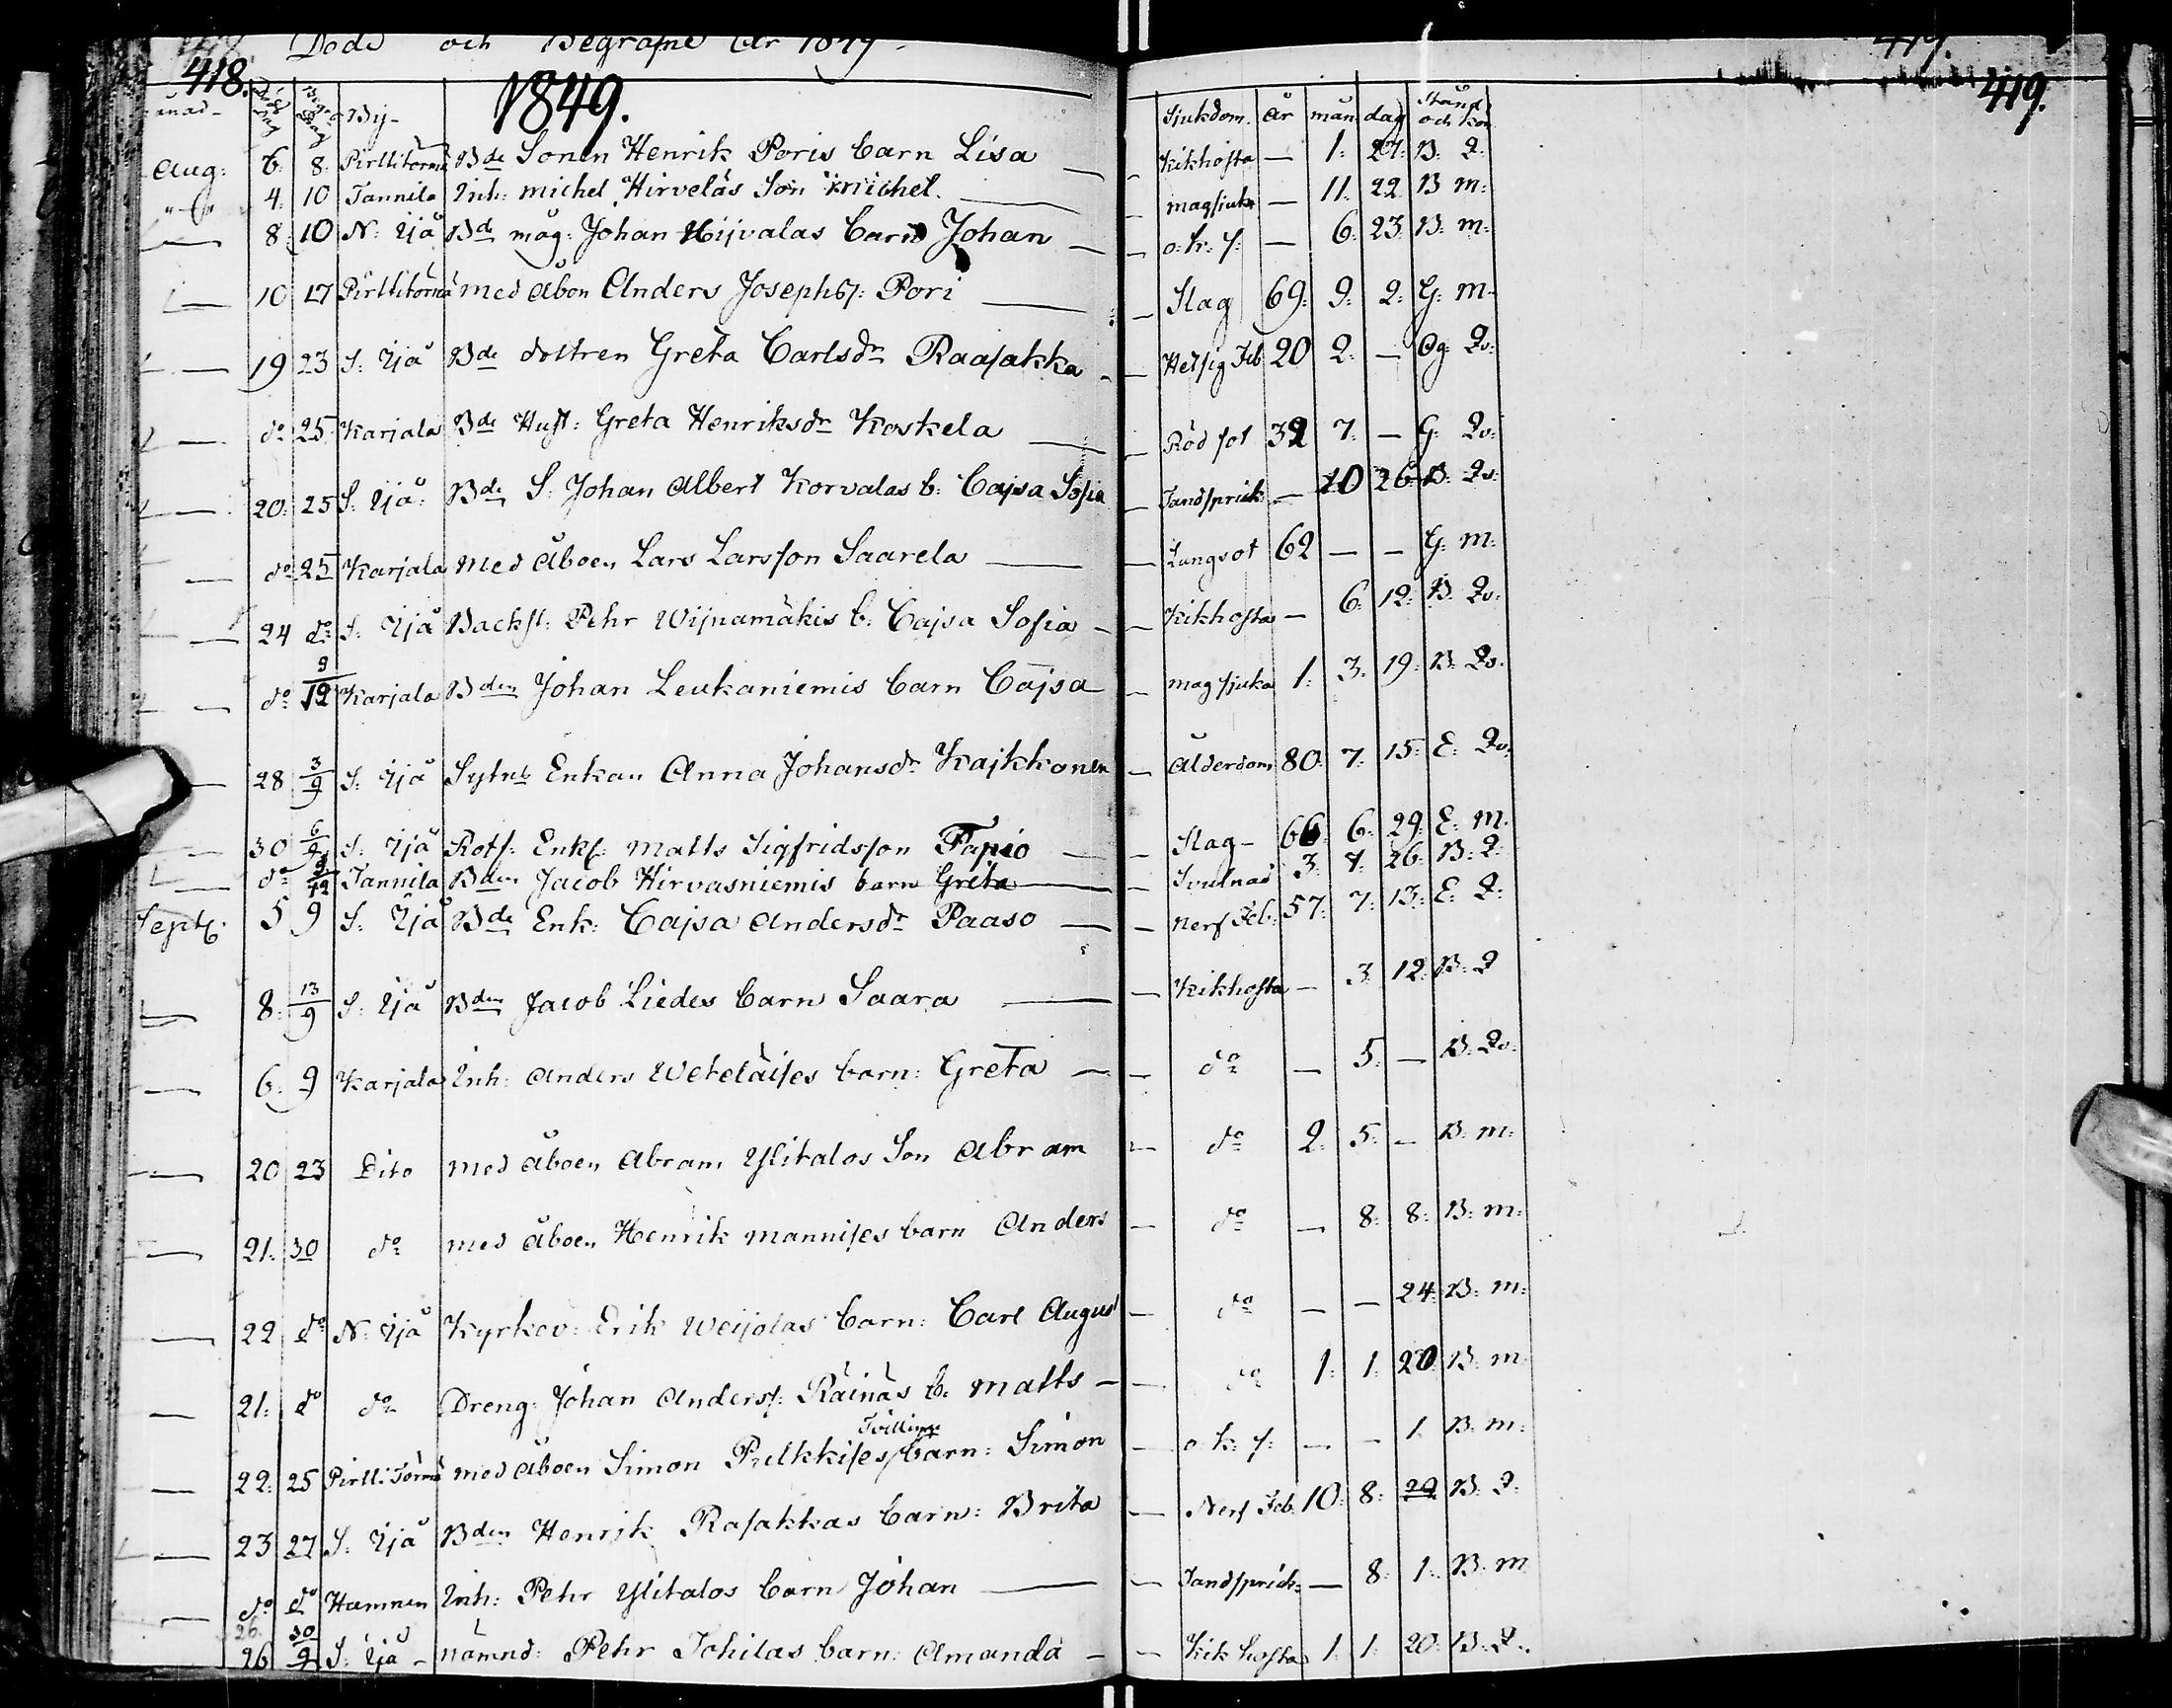 Döde och Begrafne År 1849.
418. 1849. 419.
månad Död dag Begr. dag By Sjukdom. år mån dag Stånd och kön
Aug: 6. 8. Pirttitörmä Bde Sonen Henrik Poris barn Lisa — Kikhosta — 1. 27. B. Q.
4. 10 Tannila Inh: Michel Hirveläs Son Michel — magsjuka — 11. 22 B m:
8 10 N: Ijå Bde måg: Johan Hijvalas barn Johan — o. k. s: — 6. 23. B. m.
10 17 Pirttitörmä med åbon Anders Josephs: Pori — Slag 69. 9. 2. G. m.
19 23 S: Ijå Bde dottren Greta Carlsdr Raasakka — Hetsig Feb 20 2. — Og. Qv:
do 25 Karjala Bde Hust: Greta Henriksdr Koskela — Röd sot 32 7. — G. Qv:
20. 25 S. Ijå: Bde S. Johan Albert Korvalas b: Cajsa Sofia — Tandsprick — 10 26. B. Qv:
do 25 Karjala med åboen Lars Larsson Saarela — Lungsot 62 — — G. m.
24 do S: Ijå Backst: Pehr Wijnamäkis b: Cajsa Sofia — Kikhosta — 6. 12. B. Qv.
do 9/12 Karjala Bden Johan Leukaniemis barn Cajsa — magsjuka 1. 3. 19. B. Qv.
28 3/9 S: Ijå Sytn: Enkan Anna Johansdr Kajkkonen — Ålderdom 80. 7. 15. E. Qv.
30 6/9 S: Ijå Rots: Enkl: Matts Sigfridsson Tapio — Slag — 66. 6. 29. E. m.
do Tannila Bden Jacob Hirvasniemis barn Greta — Svulnad 3. 7. 26. B. Q.
Sept: 5 9 S: Ijå Bde Enk: Cajsa Andersdr Paaso — Nerf Feb. 57. 7. 13. E. Q.
8. 13/9 S: Ijå Bden Jacob Liedes barn Saara — Kikhosta — 3. 12. B. Q
6. 9 Karjala Inh: Anders Weteläises barn: Greta — do — 5. — B. Qv.
20 23 Dito med åboen Abram Ylitalos Son Abram — do 2. 5. — B. m.
21. 30 do med åboen Henrik Mannises barn Anders — do — 8. 8. B. m.
22 do N. Ijå Kyrkov: Erik Weijolas barn: Carl August — do — — 24. B. m.
21. do do Dreng: Johan Anders: Räinäs b: Matts — do 1. 1. 20. B. m.
Tvilling
22. 25 Pirtti Törmä med åboen Simon Pulkkises barn: Simon — o. k. s: — — 1. B. m.
23 27 S. Ijå Bden Henrik Rasakkas barn: Brita — Nerf Feb. 10. 8. 29 B. Q.
do do Hamnen Inh: Pehr Ylitalos barn Johan — Tandsprick: — 8. 1. B. m
26.
26 30/9 S: Ijå — nämnd: Pehr Tohilas barn: Amanda — Kikhosta 1. 1. 20. B. Q.